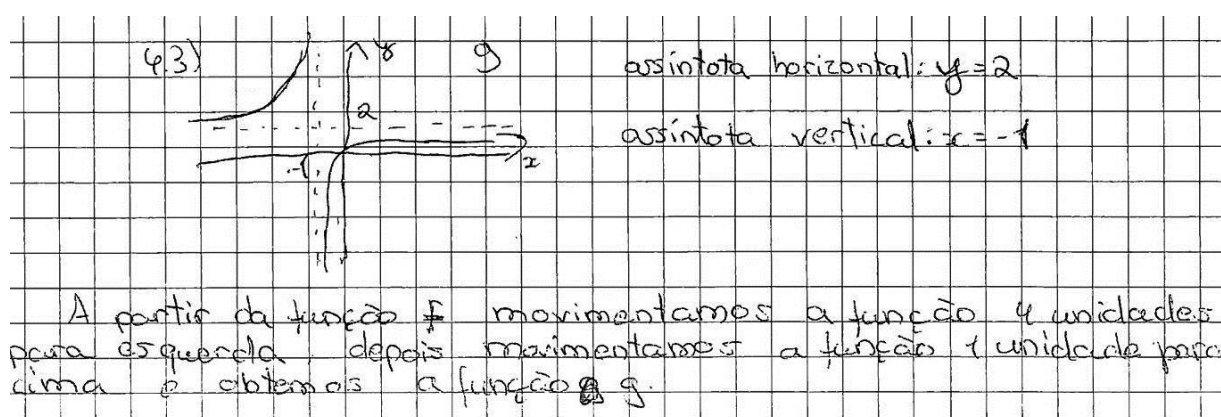 4.3)
y
g
2
-1
x
assíntota horizontal: y=2
assíntota vertical: x=-1
A partir da função f movimentamos a função 4 unidades
para esquerda, depois movimentamos a função 1 unidade para
cima e obtemos a função g.